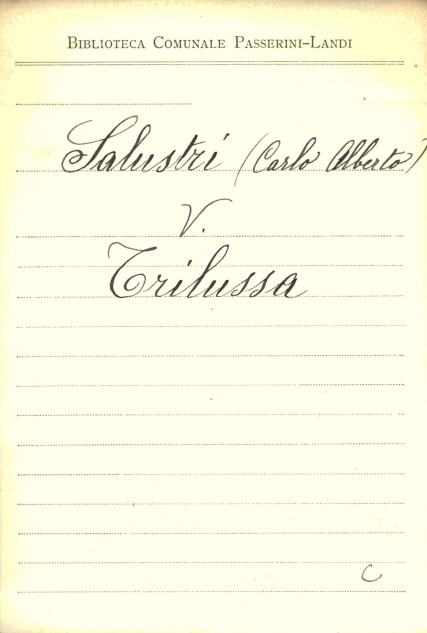 Biblioteca Comunale Passerini-Landi
Salustri (Carlo Alberto)
V.
Trilussa
C